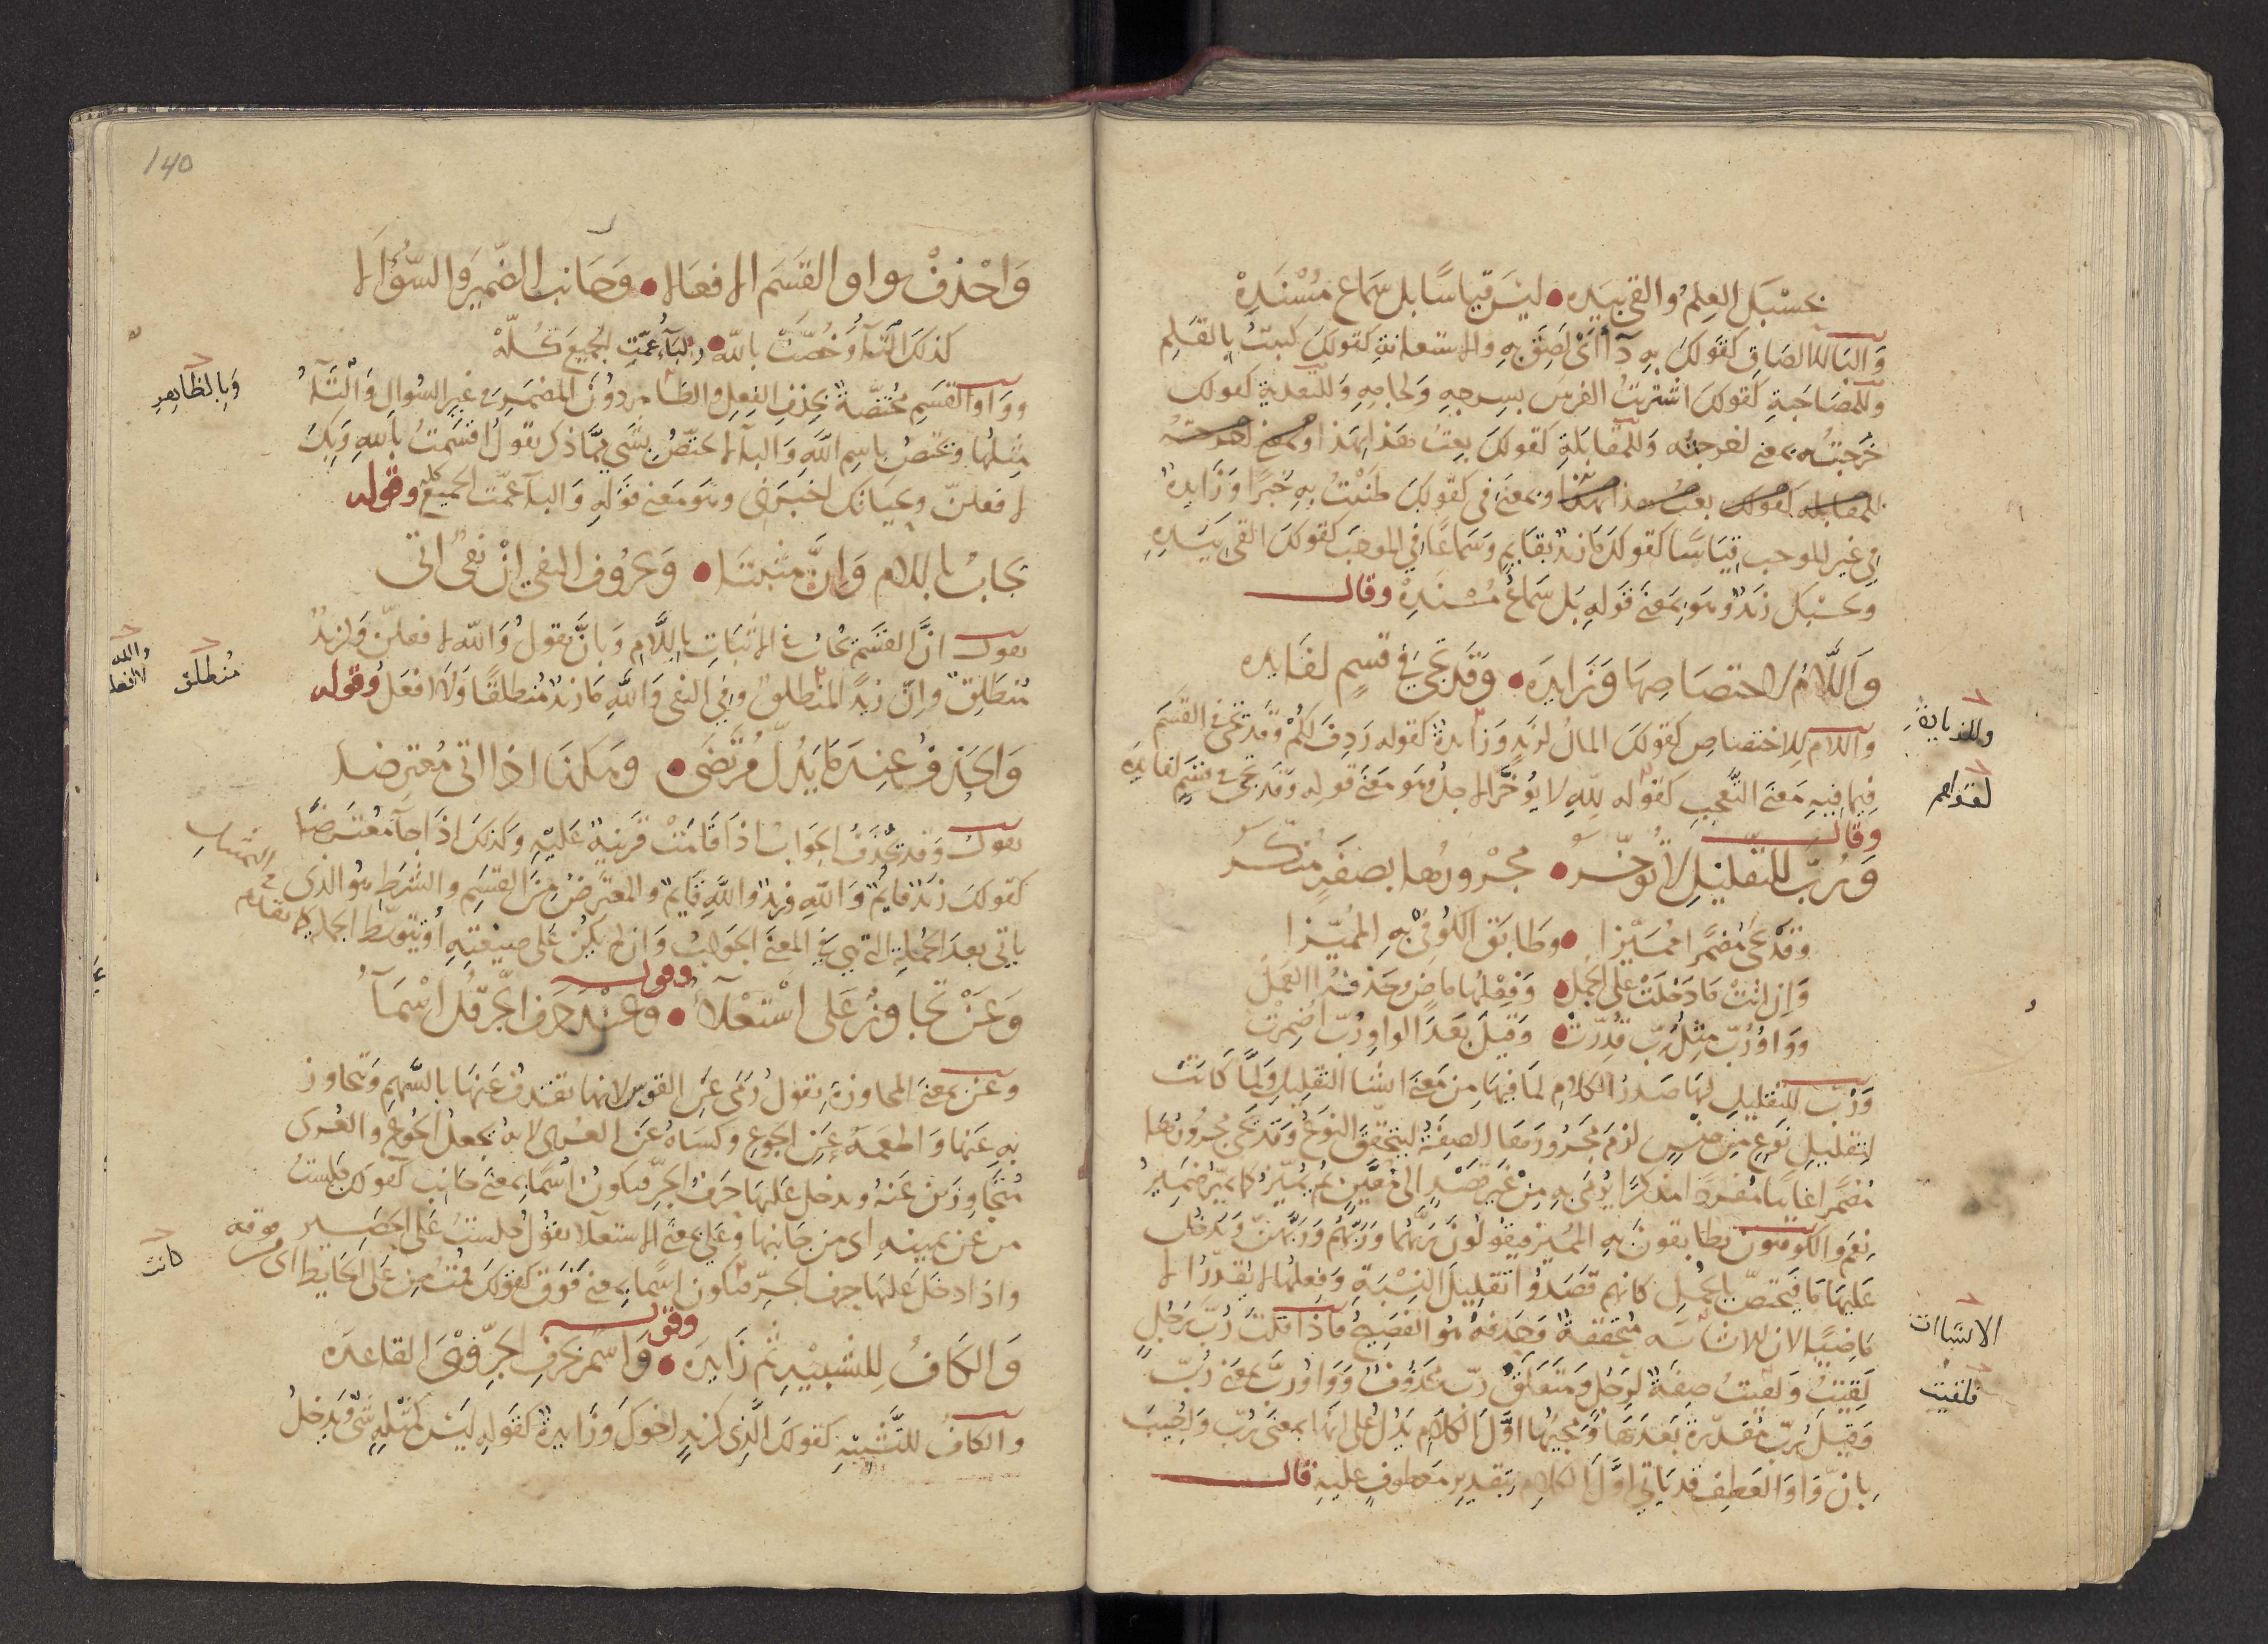 بحسبك العلم والقى بيده • ليس قياسًا بل سماع مُسْنَدِهْ
وَالبَا للالصَاقِ كقولك بِهِ دآءٌ اىْ لَصِقَ بِهِ والاستعانةِ كقولكَ كتبتُ بِالقلم
وَللمصَاحَبةِ كقولكَ اشْتريتُ الفرسَ بسرجِهِ وَلجامِهِ وَللتعديةِ كقولك
خرَجتُ به بمعنى اخرجته وَللمقابَلةِ كقولكَ بعتُ هَذا بهَذا
وبمعنى فى كقولكَ ظننْتُ بِهِ خيرًا وَزَايدة
فى غير الموجب قِيَاسًا كقولكَ مَا زيدٌ بقايمٍ وَسَماعًا فى الموجَب كقولكَ القى بيَدِهِ
وبحسْبكَ زيدٌ وهو بمعنى قوله بَل سَمَاعُ مُسْنَدِهْ وقال
وَاللّامُ لاختصاصِهَا وَزَايدَه • وَقَد تجى فى قَسَمٍ لفَايده
واللام للاختصاصِ كقولكَ المالُ لزَيدٍ وَزَايدة كقوله رَدِفَ لكُمْ وَقَد تجى فى القسَم
فيما فيهِ مَعنَى التعجب كقوله للهِ لا يُؤخَّرُ الاجلُ وهو مَعنَى قوله وَقَد تجى فى قَسَمٍ لفايده
وقال
وَرُبّ للتقليلِ لا تُوخّرُ • مجرُورُها بصفةٍ منكّرُ
وقَدْ تجى مُضمرا مُميّزا • وطابَق الكُوفى بهِ المُميّزا
وَإن اتتْ مَا دَخلَتْ على الجُملْ • وَفِعْلهَا مَاضٍ وحَذفهُ العمَلْ
ووَاوُ رُبّ مِثلُ رُبّ قُدّرتْ • وَقيلَ بَعدَ الواوِ رُبّ اضمِرتْ
وَرُبّ للتقليلِ لهَا صَدرُ الكلامِ لمَا فيهَا مِن مَعنَى انشا التقليل وَلمّا كَانتْ
لتقليلِ نوعٍ مِن جنْسٍ لزمَ مجرورَهَا الصفةُ ليتحقّقَ النوعُ وَقَد تجى مجرُورُهَا
مُضمرًا غايبًا مُفردًا مذكرًا يُرمَى بهِ مِنْ غير قَصْدٍ الى مُعَيّنٍ ثم يُميّزُ كما يميز ضميرُ
نِعمَ والكوفيون يطابقونَ بهِ المُميّز فيقولُونَ رُبّهُمَا وَرُبّهُمْ وَرُبّهُنّ وَتدخُل
عَليهَا مَا فَيختصّ بالجُمل كانهم قصَدُوا تقليلَ النِسْبَةِ وَفعلهَا لا يُقدّرُ الا
مَاضيًا لان مُتحققةٌ وَحذفهُ هُوَ الفصيحُ فاذا قلتَ رُبّ رجُلٍ
لقيتُ وَلقيتُ صِفةٌ لرَجُلٍ وَمتعَلّقُ رُبّ محذُوفٌ وَوَاوُ رُبّ بمعنى رُبّ
وَقيلَ رُبّ مُقدّرة بَعدَهَا وَمجيئُها اوّلَ الكلامِ يَدُلّ على انهَا بمعنى رُبّ وَاجيبَ
بانّ وَاوَ العَطفِ قد يَاتى اوّلَ الكلامِ بتقديرِ مَعطوفٍ عليهِ قال
وللزيادة
لقولهم
فلقيت
140
وَاحْذفْ بواو القسَمِ الافعَالا • وَجَانبِ الضميرَ والسُّؤالا
كذلكَ التآءُ وَخُصّتْ باللّه • والبآءُ عمّتِ الجميعَ كُلّهْ
ووَاوُ القسَمِ مُختصّةٌ بحذفِ الفِعلِ والظاهر دُونَ المضمرِ وفى غير السُوالِ وَالتآءُ
مِثلها وتختصُ باسمِ اللهِ وَالبآء لا تختصّ بشى ممّا ذُكر تقولُ اقسَمتُ باللهِ وَبكَ
لافعلنّ وبحيَاتكَ اخبرنى وهو مَعنى قوله وَالبآء عمّت الجميع كله وقوله
يجابُ باللام وَإنَّ مثبتَا • وَحرُوف النفى إنْ نفىٌ اتى
يقول انّ القسَم يجابُ فى الاثباتِ باللّام وَبانّ تقولُ وَالله لافعلنّ ولَزيدٌ
مُنطلقٌ وانّ زيدًا لمنطلقٌ وفى النفى وَاللهِ مَا زيدٌ مُنطلقًا وَلا افعَل وقوله
وَالحذفُ عِندَ مَا يَدُلّ مُرْتَضَى • وهكذا اذا اتى مُعترضا
يقولُ وَقد يُحْذَفُ الجوابُ اذا قامَتْ قرينةٌ عَليْهِ وكذلكَ اذَا جآءَ مُعترَضًا
كقولكَ زيدٌ قايمٌ وَاللهِ وزيدٌ واللهِ قايمٌ والمُعترضُ مِنَ القسَمِ والشرطِ هُو الذى
ياتى بعدَ الجُملةِ التى هى فى المعنَى الجوابُ وَان لم يكنْ على صيغتِهِ أو يتوسّط الجملة كما تقدم
وقوله
وَعَنْ تجاوزٌ على اسْتعْلآءُ • وعِنْدَ حرفِ الجرّ قُل اسْمَآءُ
وعَن بمعنى المجاوزة تقولُ رَمَى عَنِ القوسِ لانهَا تقذفُ عَنهَا بالسَّهمِ وَتجاوز
بهِ عَنهَا وَاطعمَهُ عَنِ الجوعِ وكسَاهُ عَنِ العُرى لانهُ يجعلُ الجُوعَ والعُرى
مُتجاوزينِ عَنهُ ويدخل عَليها حَرفُ الجرّ فتكونُ اسمًا بمعنى جَانب كقولك جَلستُ
من عن يمينِهِ اى من جَانبها وعَلى بمعنى الاستعلا تقولُ جلستُ عَلى الحصير
واذا دخَل عَليهَا حرف الجرّ فتكون اسمًا بمعنى فَوقَ كقولكَ قمتُ مِن عَلى الحايط اى من فوقه
وقوله
وَالكافُ للتشبيْهِ ثم زَايدَه • وَاسمٌ بحرفِ الجرّ فهى القاعده
والكافُ للتّشبيْهِ كقولكَ الّذى كزيدٍ اخوكَ وَزَايدةٌ كقولِهِ ليْسَ كمثلِهِ شىٌ وَيدخلُ
وَبالظاهرِ
منطلق
كانت